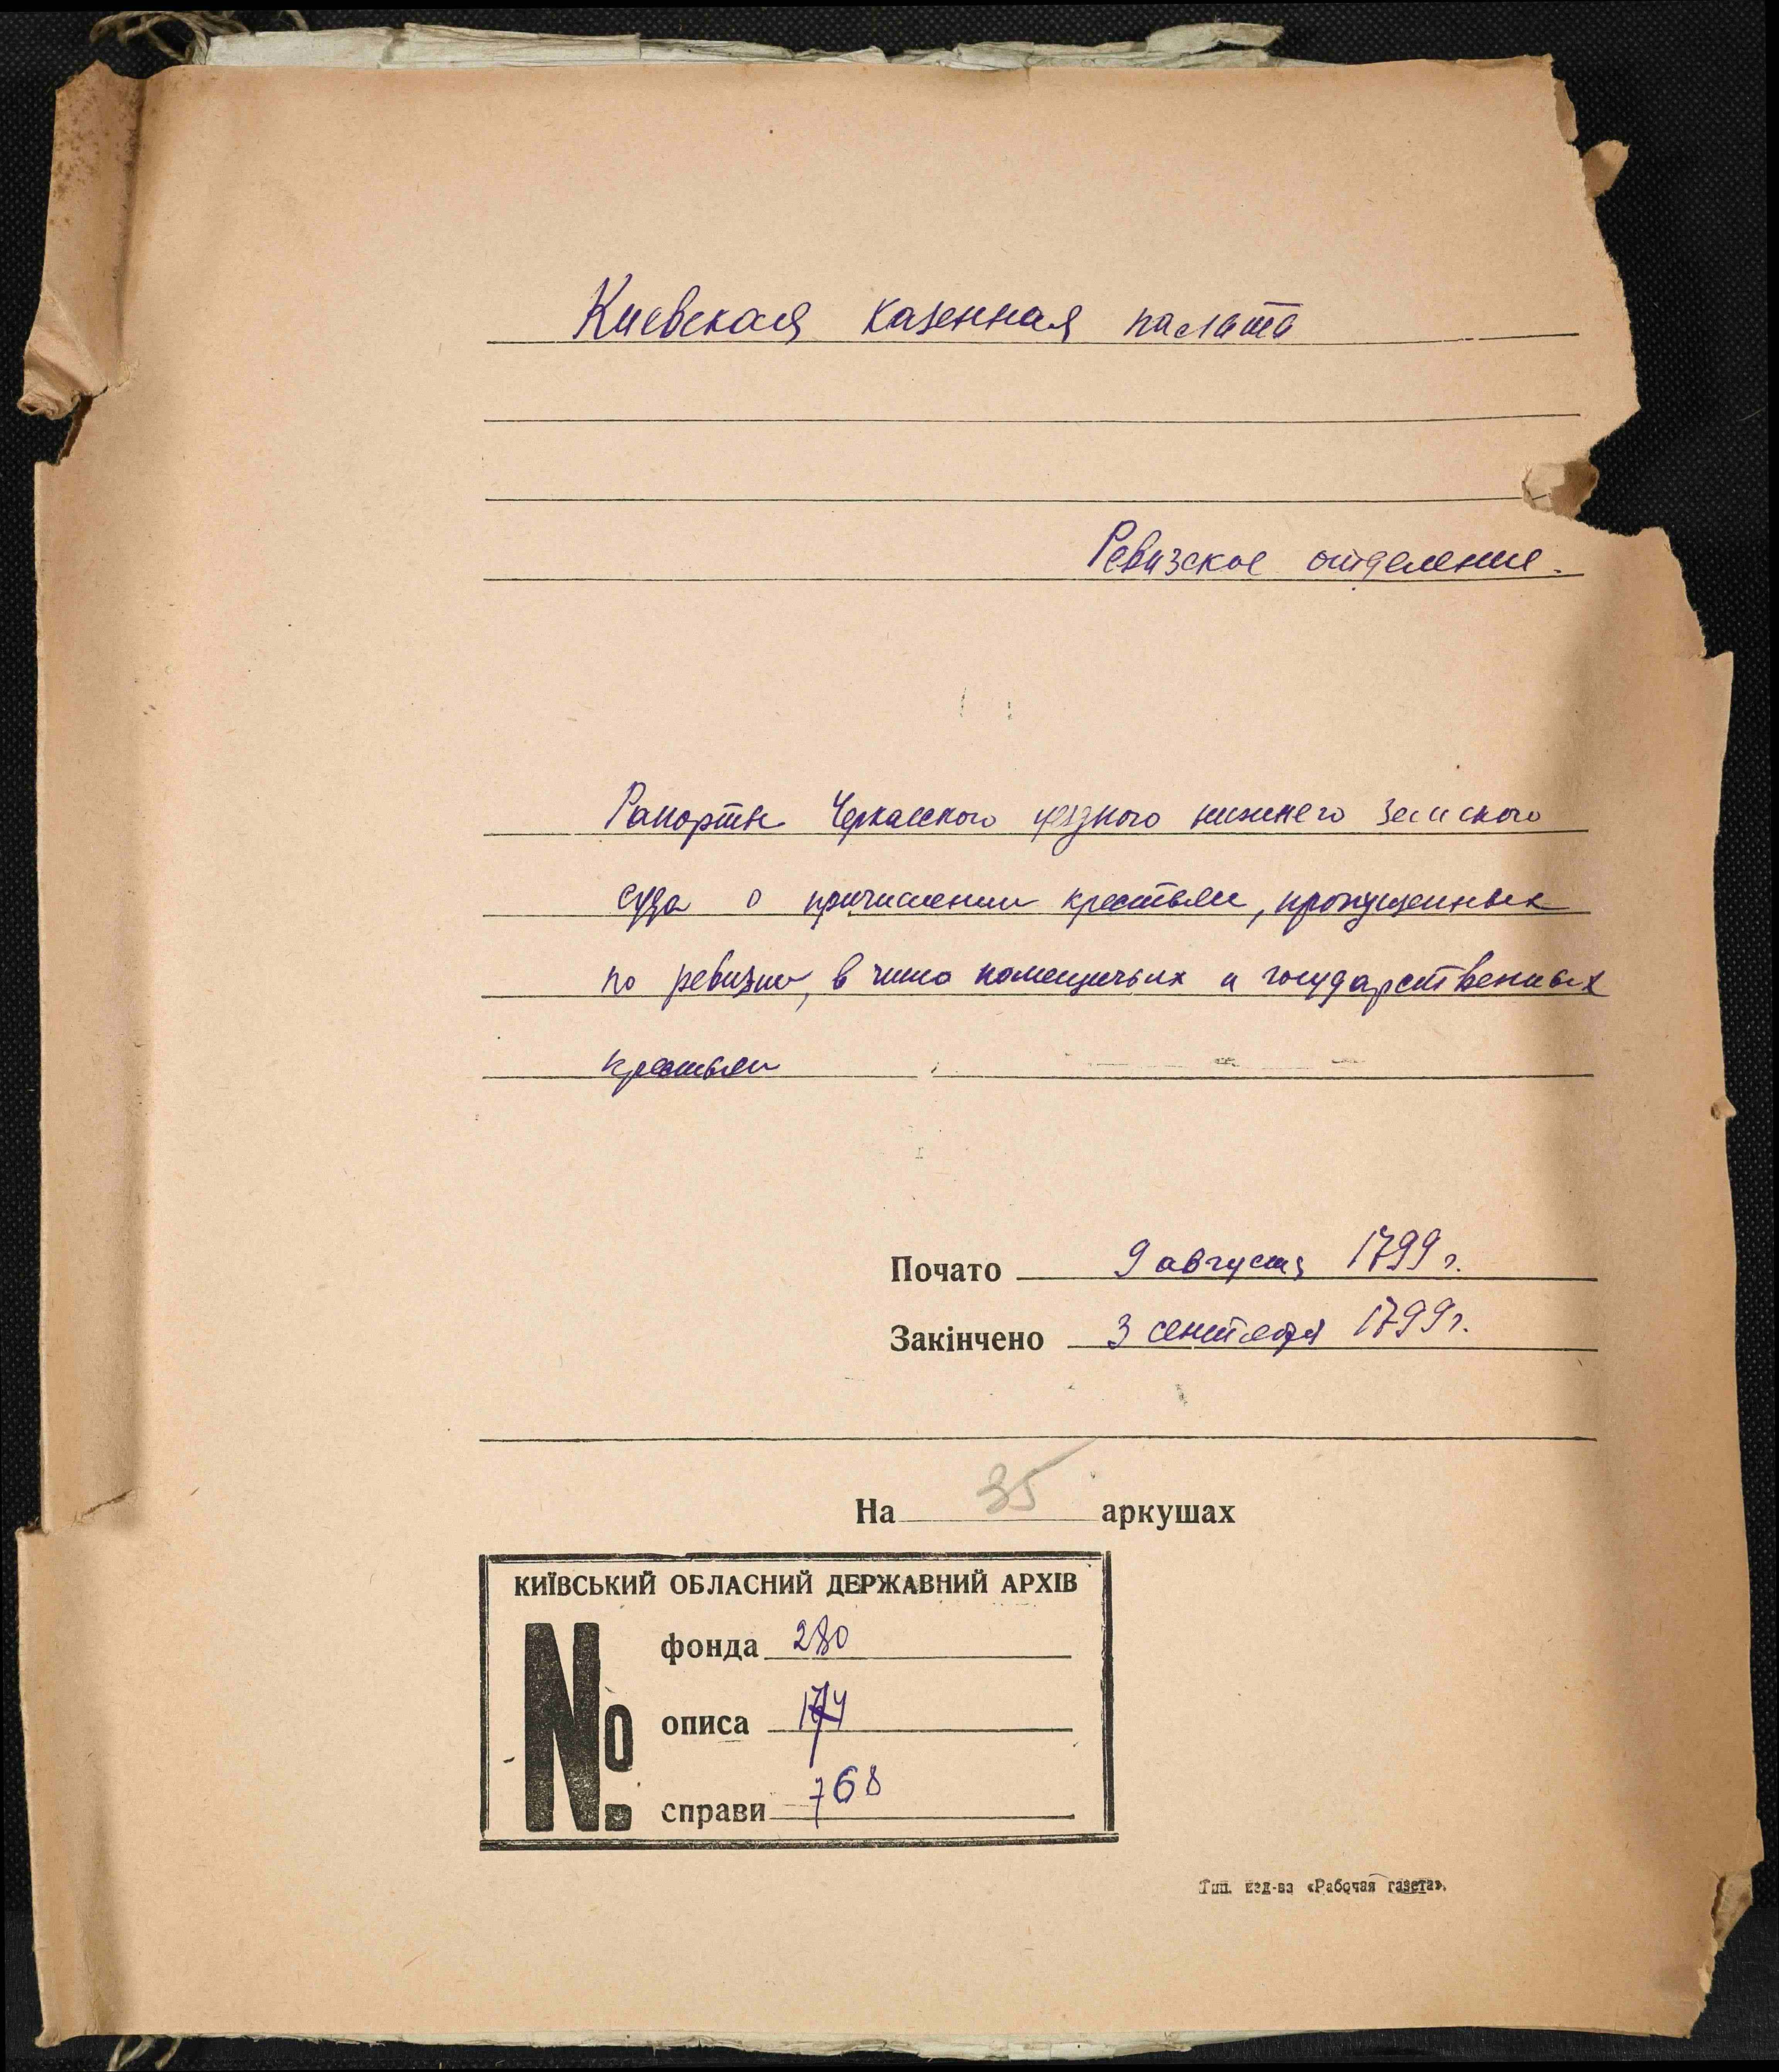 Киевская казенная палата
Ревизское отделение.
Рапорты Черкасского уездного нижнего земского
суда о причислении крестьян, пропущенных
по ревизии, в число помещичьих и государственных
крестьян
Почато 9 августа 1799 г.
Закінчено 3 сентября 1799 г.
На 35 аркушах
КИЇВСЬКИЙ ОБЛАСНИЙ ДЕРЖАВНИЙ АРХІВ
№
фонда 280
описа 174
справи 768
Тип. изд-ва «Рабочая газета».